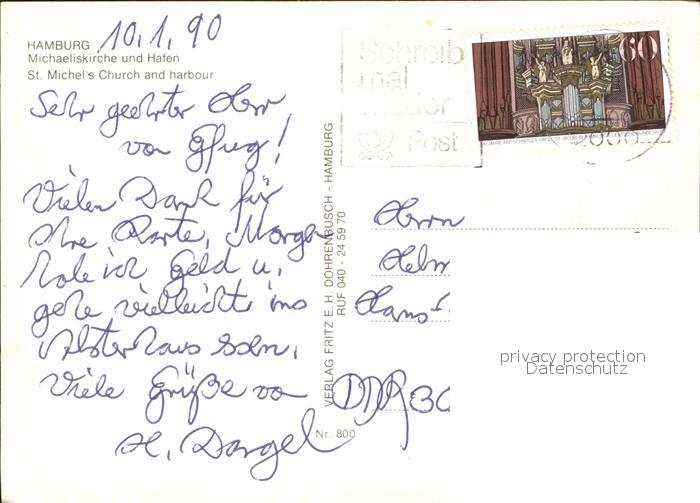 10.1.90
HAMBURG
Michaeliskirche und Hafen
St. Michel's Church and harbour
Sehr geehrter Herr
von Pflug!
Vielen Dank für
Ihre Karte, Morgen
hole ich Geld u.
gehe vielleicht ins
Alsterhaus
Viele Grüße von
H. Dargel
VERLAG FRITZ E. H. DOHRENBUSCH - HAMBURG
RUF 040 - 24 59 70
Nr. 800
Schreib
mal
wieder
Post
60
DEUTSCHE BUNDESPOST
2000
Herrn
Helm
Hans-
DDR 30
privacy protection
Datenschutz